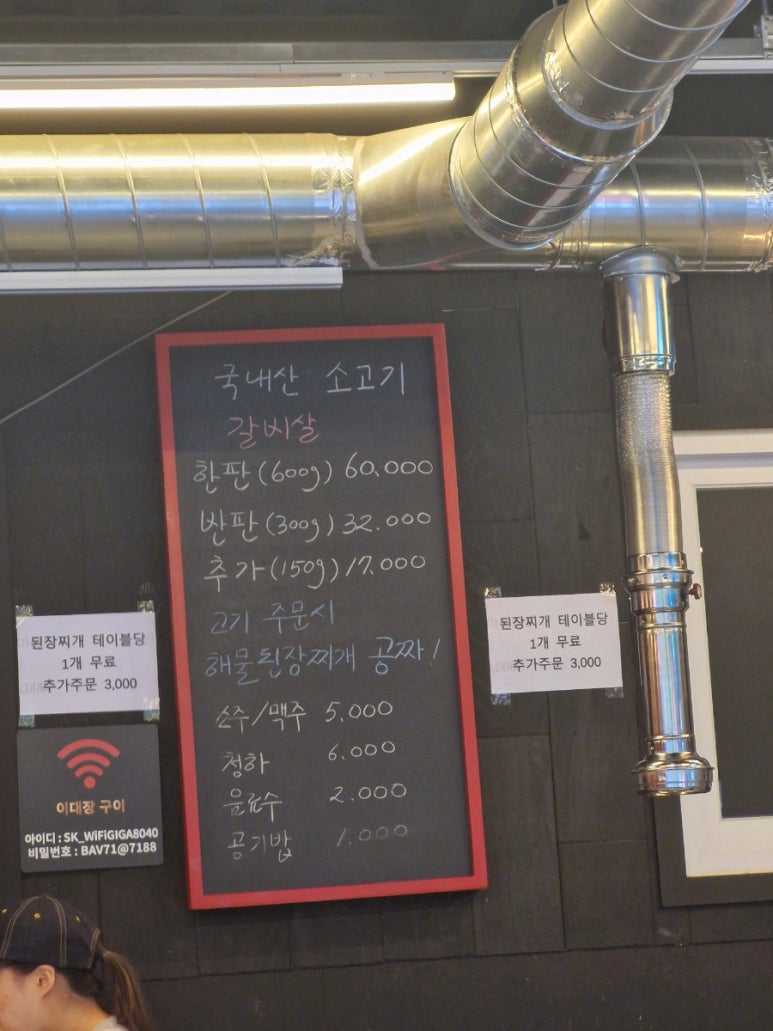 국내산 소고기
갈비살
한판(600g) 60,000
반판(300g) 32.000
추가(150g) 17.000
고기 주문시
해물된장찌개 공짜!
소주/맥주 5.000
청하 6.000
음료수 2.000
공기밥 1.000
된장찌개 테이블당
1개 무료
추가주문 3,000
이대장 구이
아이디 : SK_WiFiGIGA8040
비밀번호 : BAV71@7188
된장찌개 테이블당
1개 무료
추가주문 3,000